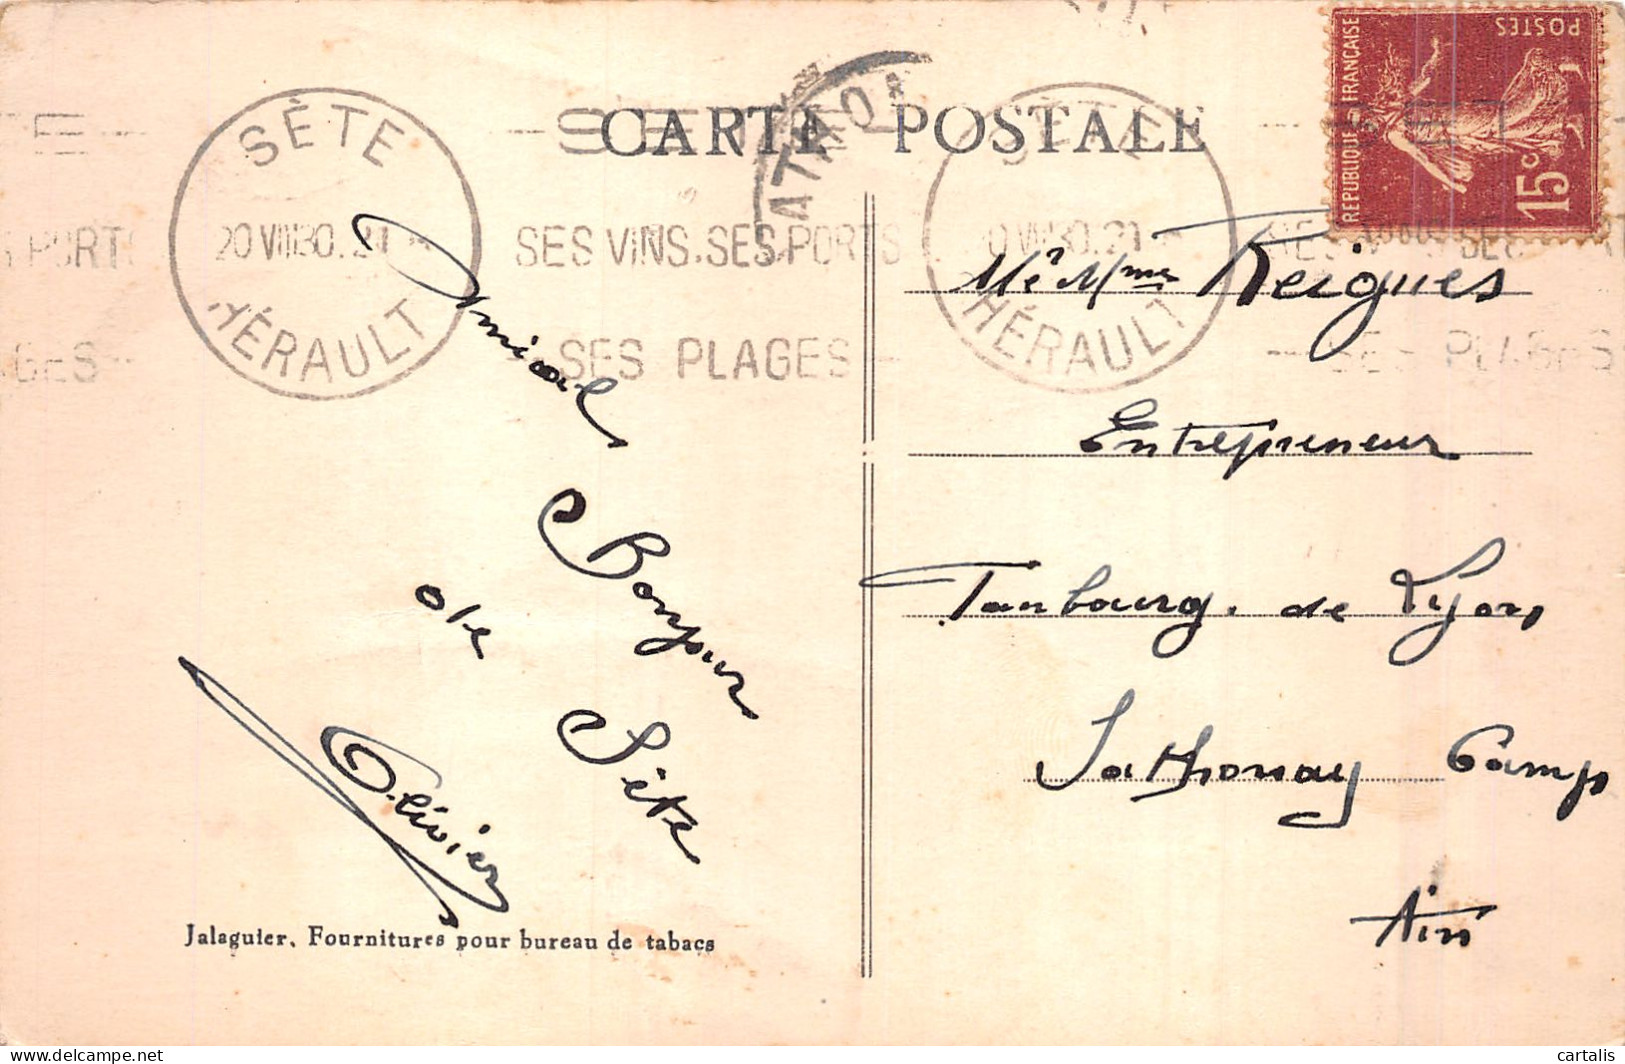 CARTE POSTALE
SÈTE
20 VIII 30. 21
HÉRAULT
SÈTE
SES VINS. SES PORTS
SES PLAGES
SÈTE
HÉRAULT
REPUBLIQUE FRANÇAISE
POSTES
15c
Amicales
Bonjour
de
Sète
Olivier
Mr Mme Reigues
Entrepreneur
Faubourg. de Lyon
Sathonay Camp
Ain
Jalaguier, Fournitures pour bureau de tabacs
cartalis